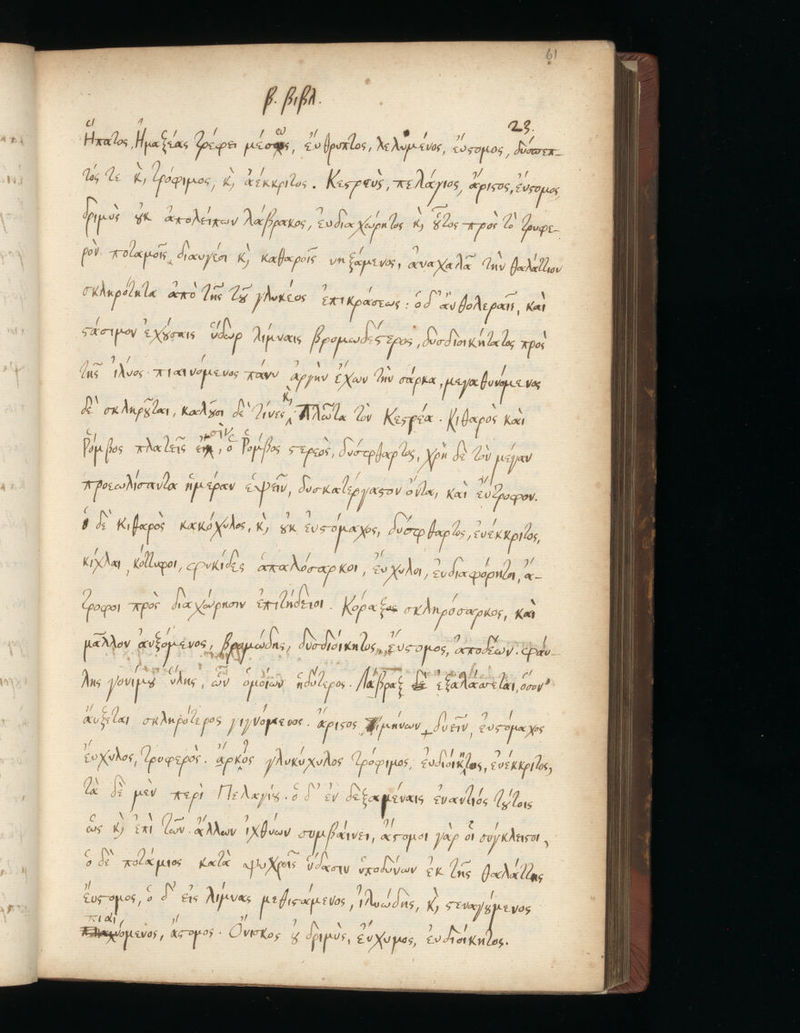 61
β. βιβλ.
23.
Ἥπατος, Ἡμαξέας τρέφει μέσως, εὔθρυπτος, λελυμένος, εὔστομος, δύσπεπ-
τός τε κ̀, τρόφιμος, κ̀, ἀέκκριτος. Κεστρεὺς, πελάγιος, ἄριστος, εὔστομος,
δριμὺς οὐκ ἀπολείπων λάβρακος, εὐδιαχώρητος κ̀, οὗτος πρὸς τὸ τρυφε-
ρὸν ποταμοῖς διαυγέσι κ̀, καθαροῖς νηξάμενος, ἀναχαλᾶ τὴν θαλάττιον
σκληρότητα ἀπὸ τῆς τοῦ γλυκέος ἐπικράσεως: ὁ δ' ἂν θολεραῖς, καὶ
στάσιμον ἐχούσαις ὕδωρ λίμναις βρομωδέστερος, δυσδιοικήτατος πρὸς
τῆς ἰλύος πιαινόμενος πάνυ ἀργὴν ἔχων τὴν σάρκα, μεγαθυνόμενος
δὲ σκληροῦται, καλοῦσι δὲ τίνες κ̀, Πλῶτα τὸν Κεστρέα. Κιθαρὸς καὶ
Ῥόμβος πλατεῖς εἰσὶν, ὁ Ῥόμβος στερεὸς, δύσφθαρτος, χρὴ δὲ τὸν μέγαν
προεωλίσαντα ἡμέραν ἑψεῖν, δυσκατέργαστον ὄντα, καὶ εὔτροφον.
ὁ δὲ Κιθαρὸς κακόχυλος, κ̀, οὐκ εὐστόμαχος, δύσφθαρτος, εὐέκκριτος,
κίχλαι, κόττυφοι, φυκίδες ἁπαλόσαρκοι, εὔχυλοι, εὐδιαφόρητοι, ἄ-
τροφοι πρὸς διαχώρησιν ἐπιτήδειοι. Κόραξ σκληρόσαρκος, καὶ
μᾶλλον αὐξόμενος, βρομώδης, δυσδιόικητος, εὔστομος, ἀποδέων. φαύ-
λης γονίμου ὕλης, ὧν ὁμοίων ἡδύτερος. Λάβραξ δὲ ἐξαλάσεται, ὅσον
αὔξεται σκληρότερος γιγνόμενος. ἄριστος μηνῶν δυεῖν, εὐστόμαχος
εὔχυλος, τρυφερὸς. ἄρκος γλυκύχυλος τρόφιμος, εὐδιόικητος, εὐέκκριτος,
τὰ δὲ μὲν περὶ Πελαγίου. ὁ δ' ἐν δεξαμέναις ἐναντιός τούτοις
ὡς κ̀, ἐπὶ τῶν ἄλλων ἰχθύων συμβαίνει, ἄτομοι γὰρ οἱ σύγκλειστοι,
ὁ δὲ ποτάμιος κατὰ ψυχροῖς ὕδασιν ὑποδύνων ἐκ τῆς θαλάττης
εὔστομος, ὁ δ' εἰς λίμνας μεθιστάμενος, ἰλυώδης, κ̀, στεναγούμενος
πιαινόμενος, ἄστομος. Ὀνίσκος οὐ δριμὺς, εὔχυμος, εὐδιόικητος.